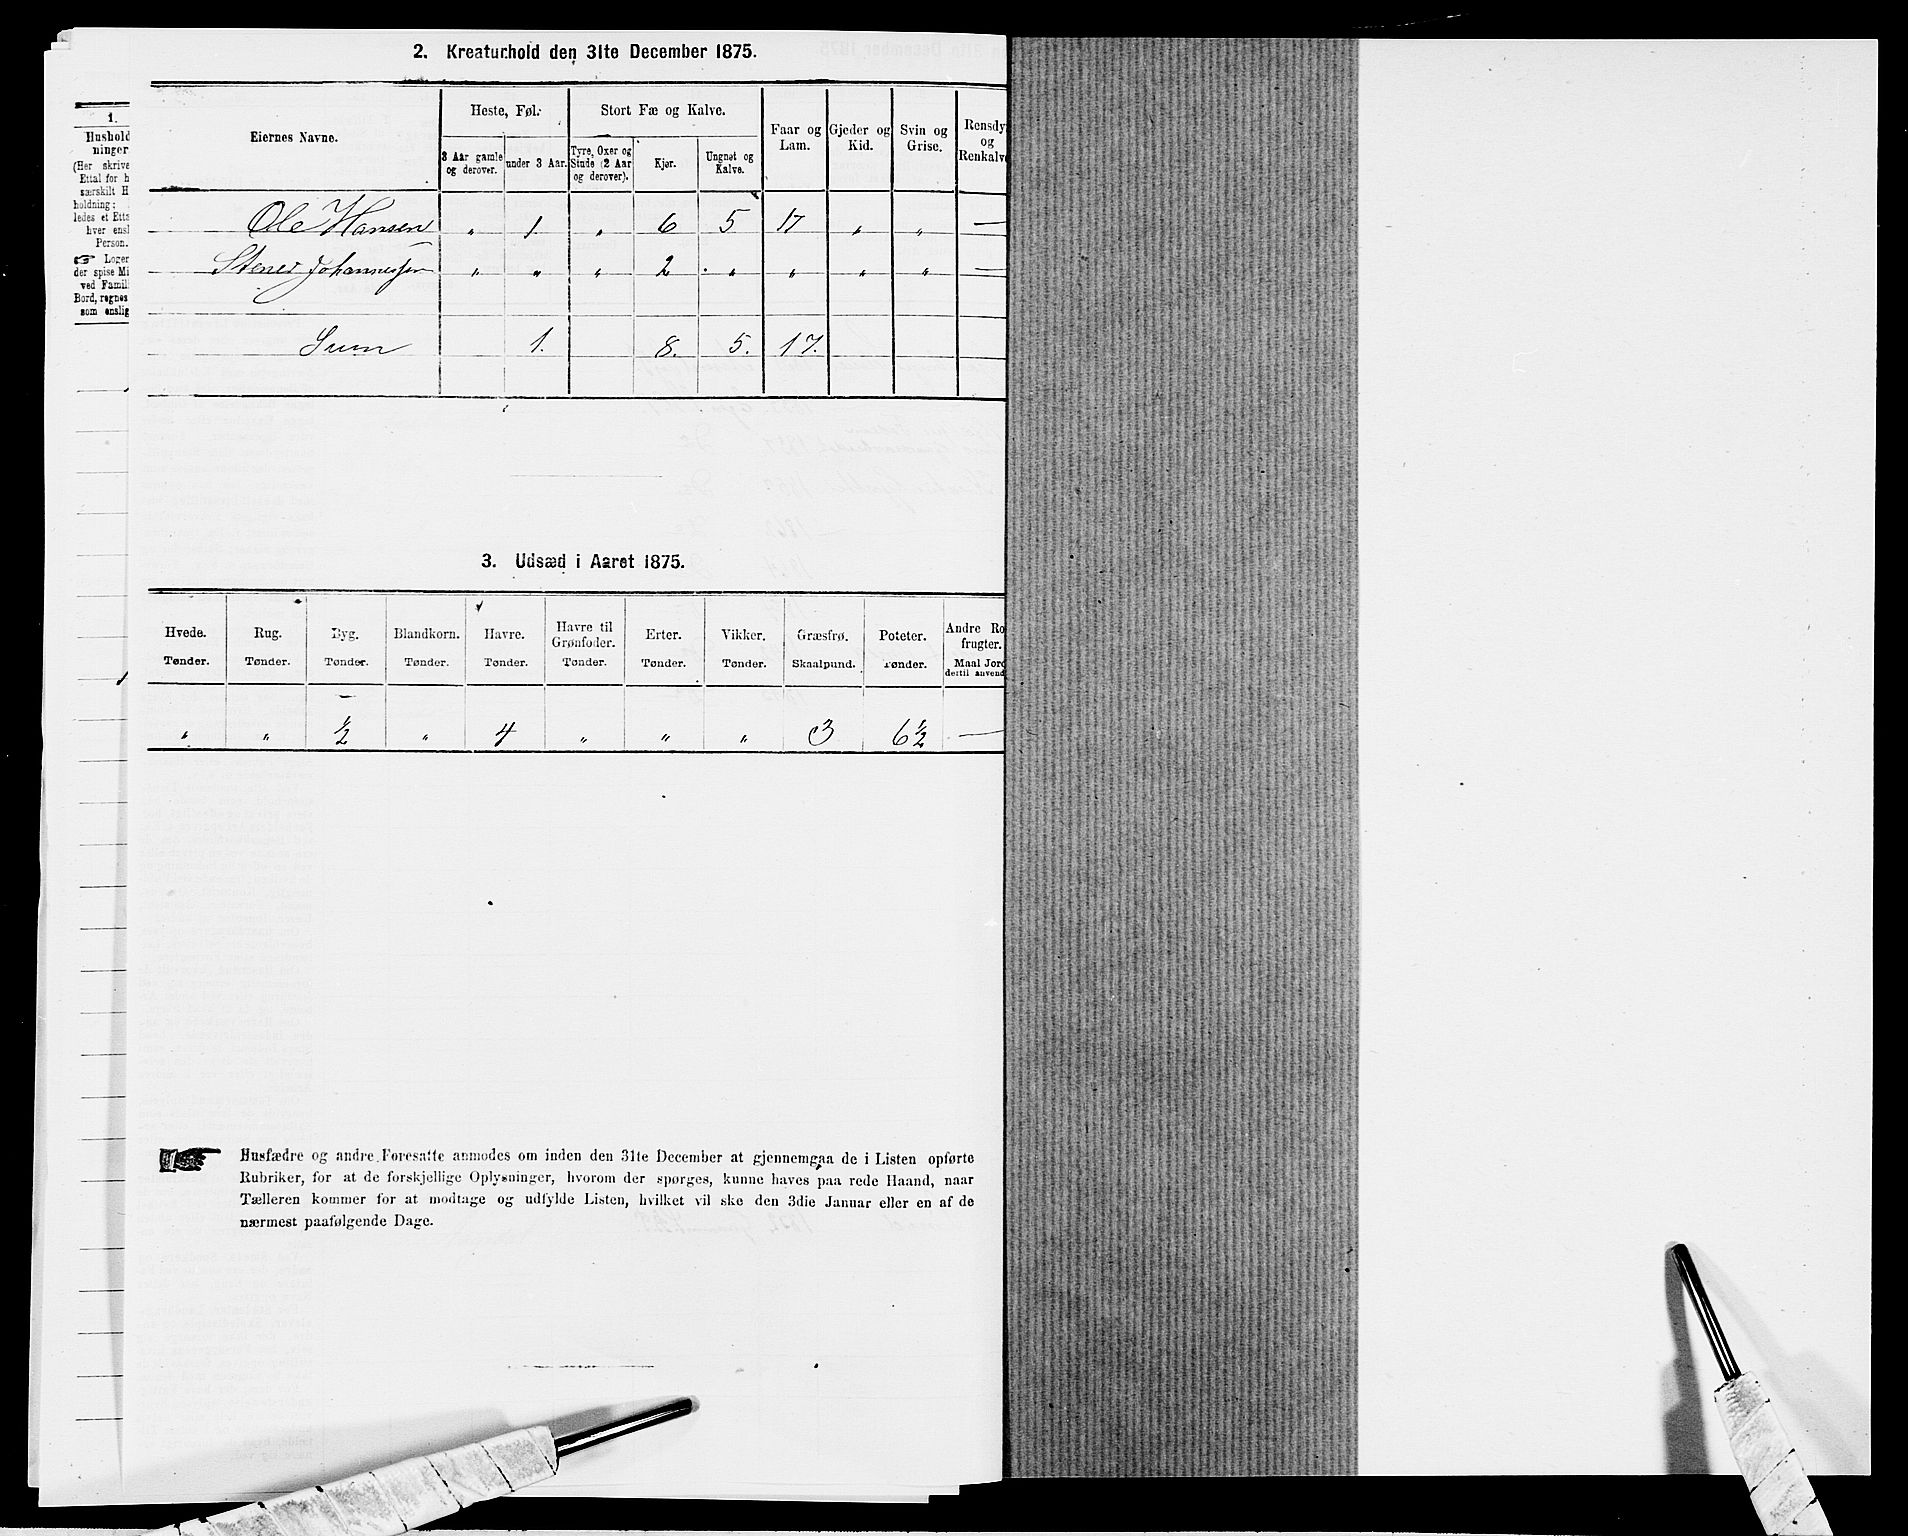 2. Kreaturhold den 31te December 1875.
1.
Hushold
ninger
(Her skrive
Ettal for h
særskilt H
holdning;
ledes et Etta
hver ensl
Person.
Loger
der spise Mi
ved Famili
Bord, regnes
som enslig
Eiernes Navne.
Heste, Føl.
Stort Fæ og Kalve.
Faar og Lam.
Gjeder og Kid.
Svin og Grise.
Rensdy
og
Renkalve
3 Aar gamle og derover.
under 3 Aar.
Tyre, Oxer og Stude (2 Aar og derover).
Kjør.
Ungnøt og Kalve.
Ole Hansen " 1 " 6 5 17 " " —
Stener Johannessen " " " 2 " " " " —
Sum 1. 8. 5. 17.
3. Udsæd i Aaret 1875.
Hvede. Rug. Byg. Blandkorn. Havre. Havre til Grønfoder. Erter. Vikker. Græsfrø. Poteter. Andre Ro
frugter.
Tønder. Tønder. Tønder. Tønder. Tønder. Tønder. Tønder. Tønder. Skaalpund. Tønder. Maal Jord
dertil anvend
" " ½ " 4 " " " 3 6½ —
Husfædre og andre Foresatte anmodes om inden den 31te December at gjennemgaa de i Listen opførte
Rubriker, for at de forskjellige Oplysninger, hvorom der spørges, kunne haves paa rede Haand, naar
Tælleren kommer for at modtage og udfylde Listen, hvilket vil ske den 3die Januar eller en af de
nærmest paafølgende Dage.